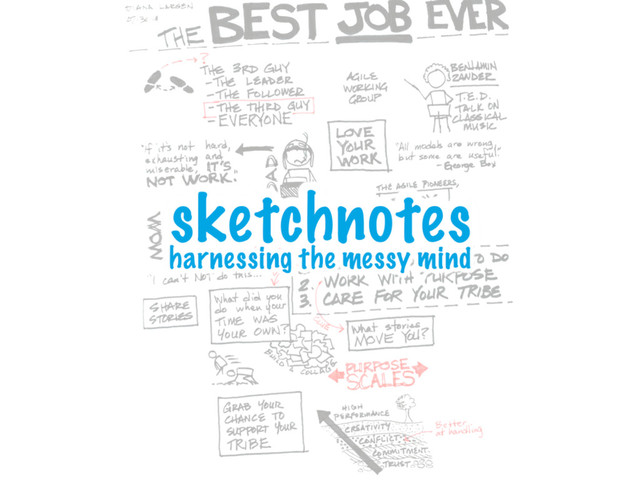 THE BEST JOB EVER
?
THE 3RD GUY
- THE LEADER
- THE FOLLOWER
- THE THIRD GUY
= EVERYONE
AGILE
WORKING
GROUP
BENJAMIN
ZANDER
T.E.D.
TALK ON
CLASSICAL
MUSIC
LOVE
YOUR
WORK
"If it's not hard,
exhausting and
miserable, IT'S
NOT WORK."
DAD
"All models are wrong,
but some are useful."
- George Box
THE AGILE PIONEERS,
sketchnotes
harnessing the messy mind
WOW
"I can't NOT do this...
TO DO
2. WORK WITH PURPOSE
3. CARE FOR YOUR TRIBE
SHARE
STORIES
What did you
do when your
TIME WAS
YOUR OWN?
What stories
MOVE YOU?
BUILD A COLLAGE
PURPOSE
SCALES
GRAB YOUR
CHANCE TO
SUPPORT YOUR
TRIBE
HIGH
PERFORMANCE
CREATIVITY
CONFLICT
COMMITMENT
TRUST
Better
at handling